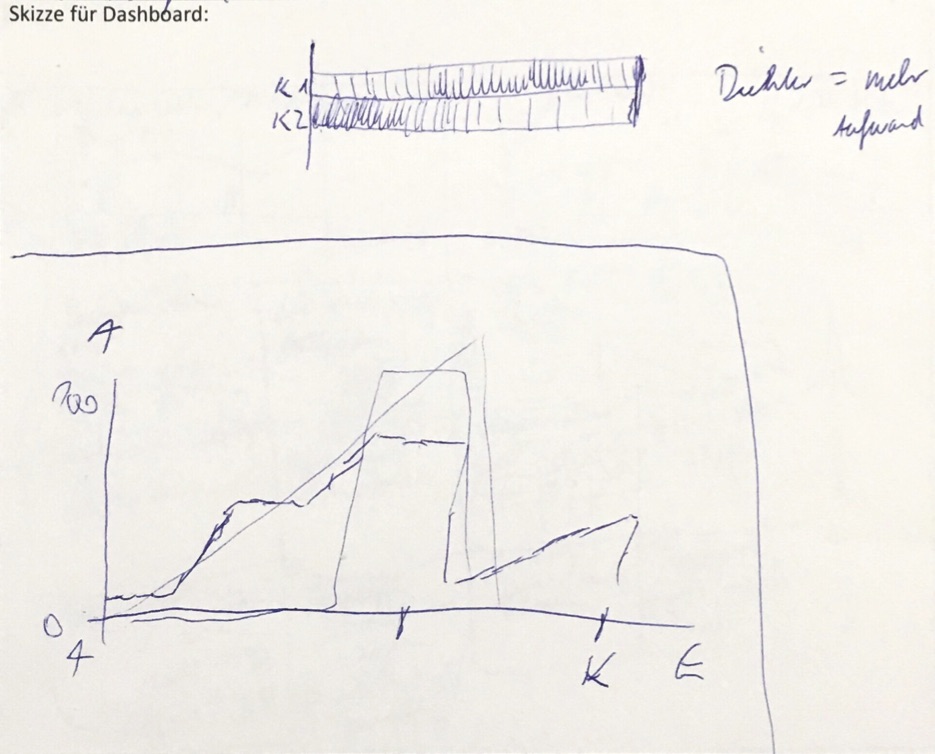 Skizze für Dashboard:
K1
K2
Dichter = mehr
Aufwand
A
100
0
A
K
E